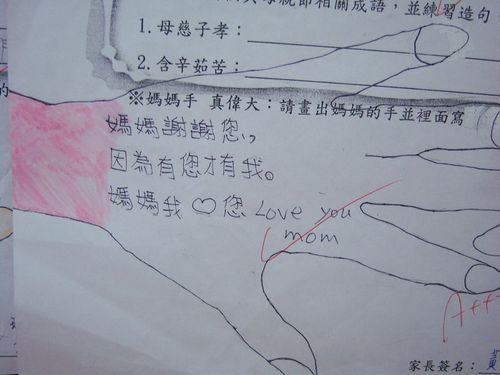 母親節相關成語，並練習造句
1.母慈子孝：
2.含辛茹苦：
※媽媽手 真偉大：請畫出媽媽的手並裡面寫
媽媽謝謝您，
因為有您才有我。
媽媽我♡您 Love you
mom
A++
家長簽名：黃